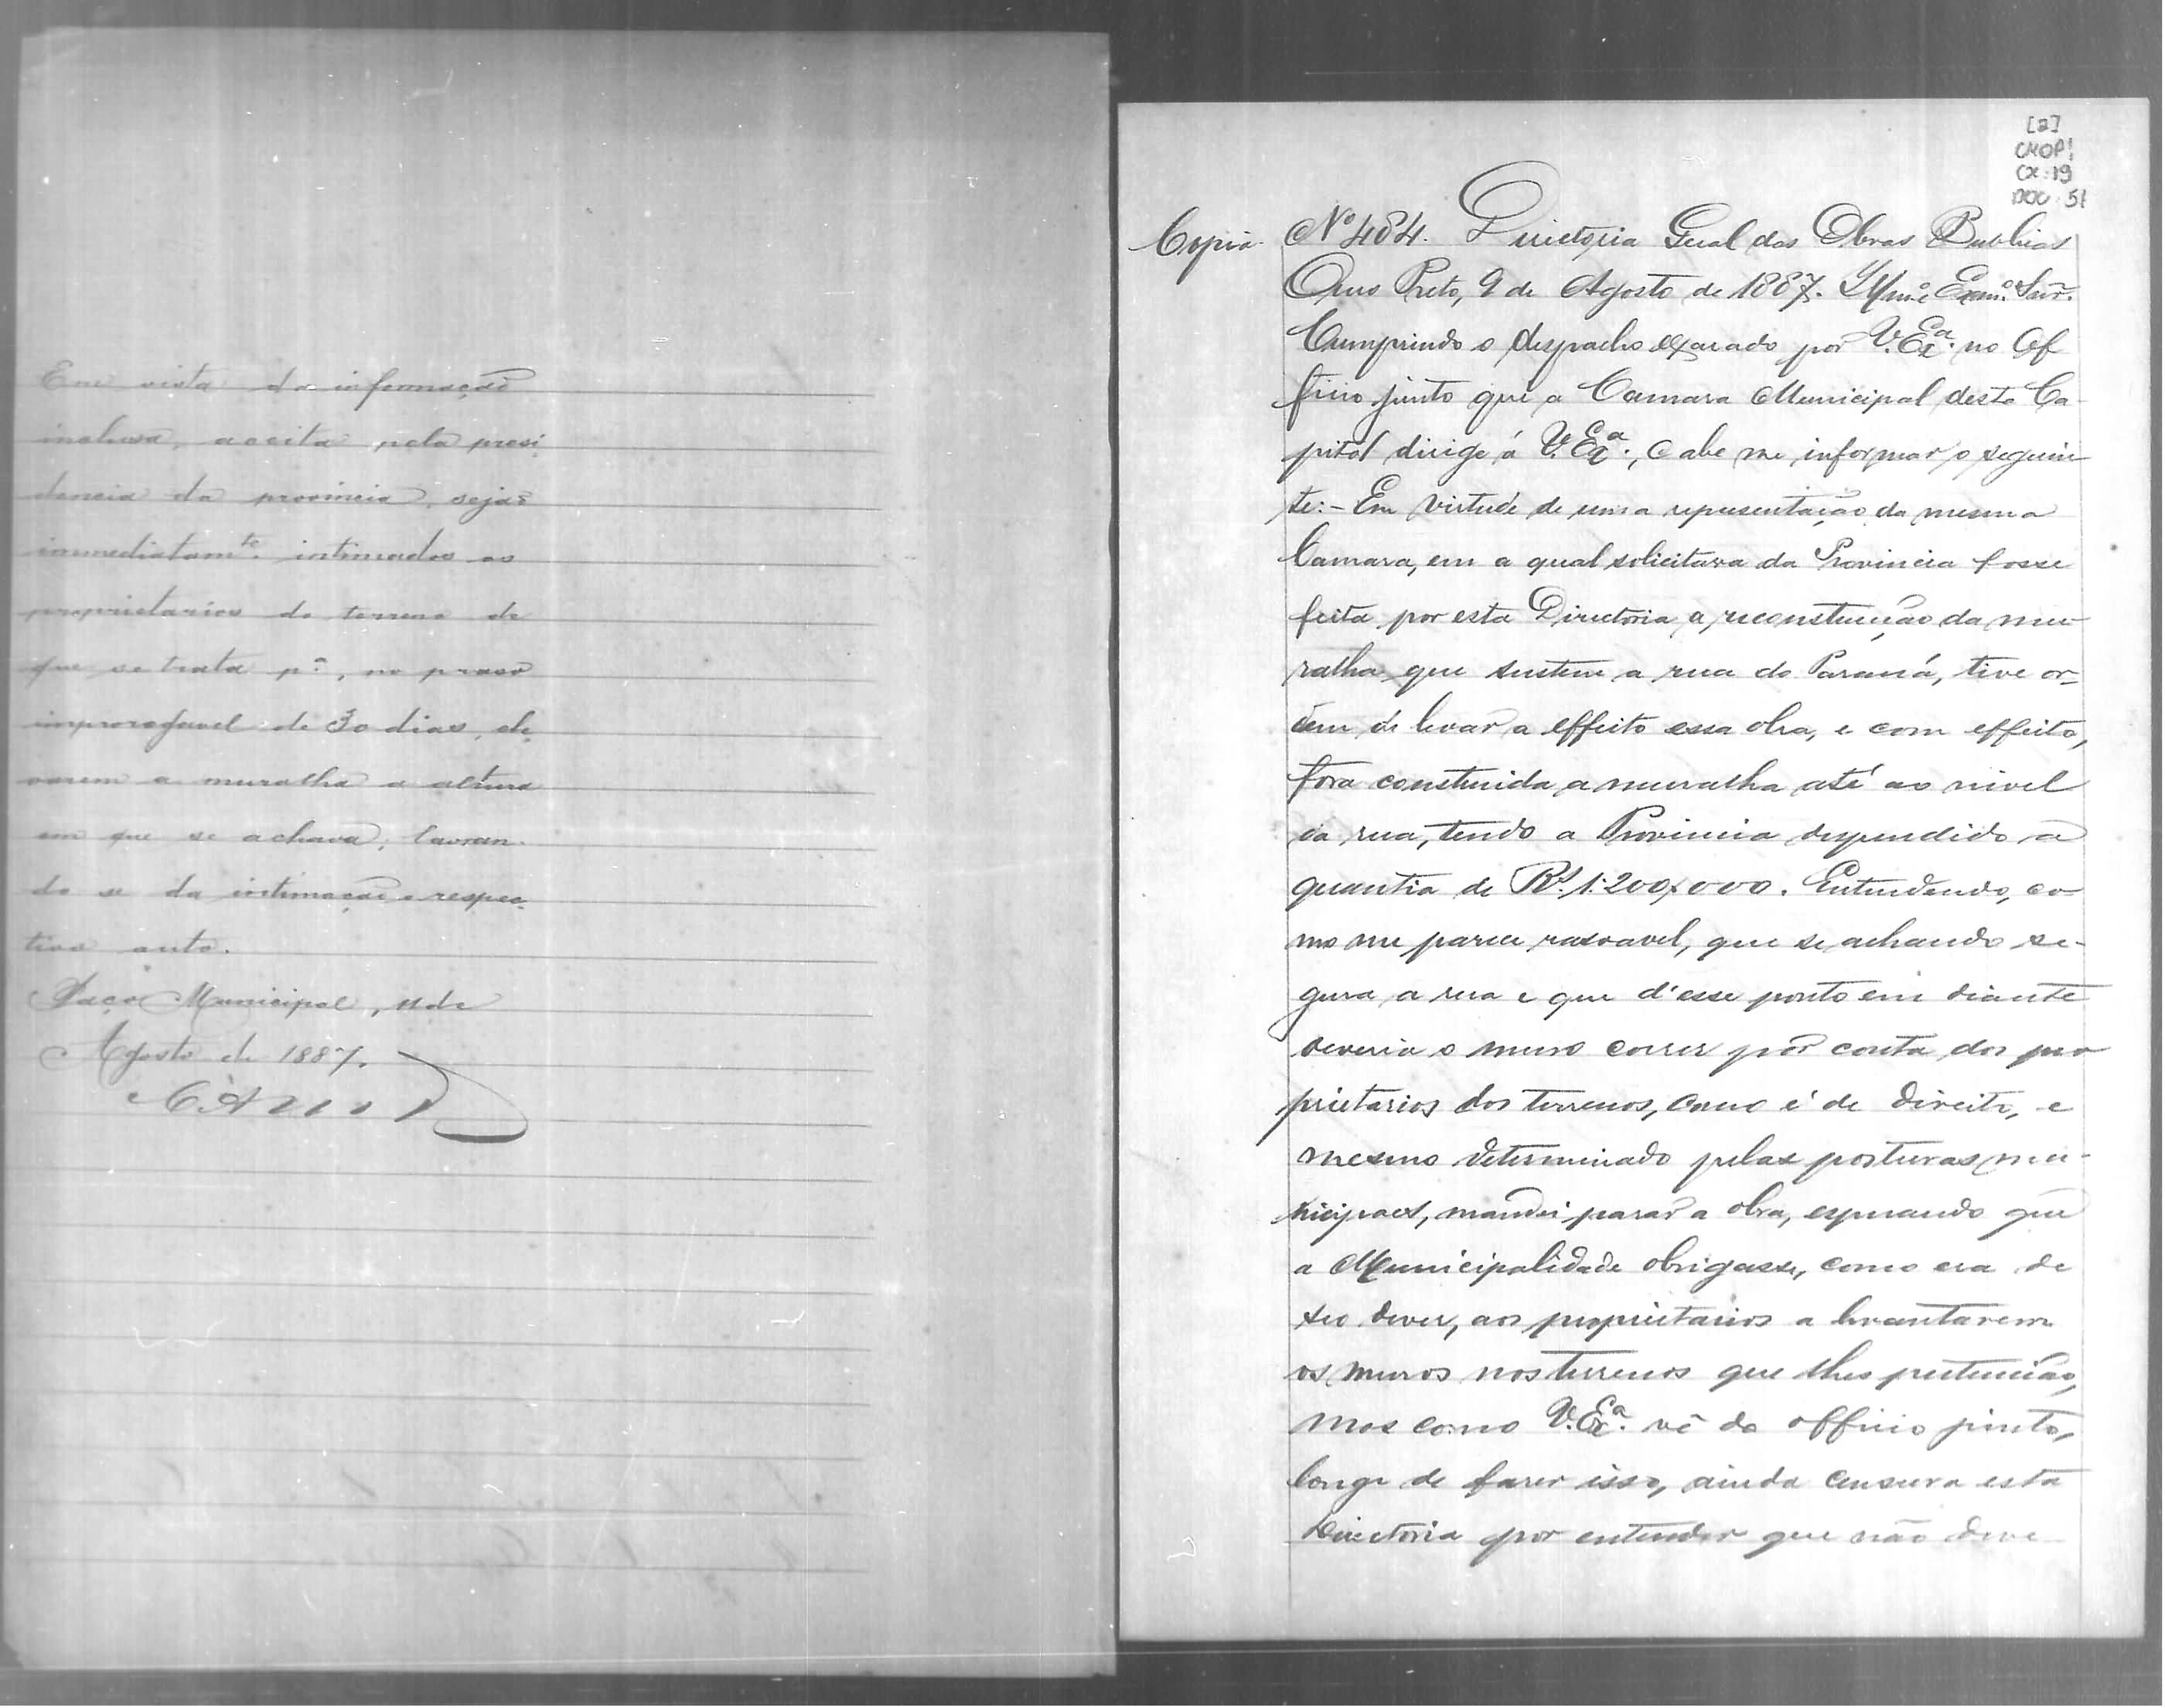 Em vista da informação
inclusa, acceita pela presi
dencia da provincia, sejão
immediatamte. intimados os
proprietarios do terreno de
que se trata pa, no praso
improrogavel de 30 dias, ele
varem a muralha a altura
em que se achava, lavran-
do se da intimação o respec-
tivo auto.
Paço Municipal, 11 de
Agosto de 1887.
[2]
CMOP
CX. 19
DOC. 51
Copia. No 484. Directoria Geral das Obras Publicas
Ouro Preto, 9 de Agosto de 1887. Illmo. e Exmo. Snr.
Cumprindo o despacho exarado por V. Exa. no Of
ficio junto que a Camara Municipal desta Ca
pital dirige á V. Exa., cabe me informar o seguin
te:- Em virtude de uma representação da mesma
Camara, em a qual solicitava da Provincia fosse
feita por esta Directoria a reconstrucção da mu
ralha que sustem a rua do Paraná, tive or-
dem de levar a effeito essa obra, e com effeito,
fora construida a muralha até ao nivel
da rua, tendo a Provincia despendido a
quantia de Rs. 1:200$000. Entendendo, co-
mo me parece rasoavel, que se achando se-
gura a rua e que d'esse ponto em diante
deveria o muro correr por conta dos pro
prietarios dos terrenos, como é de direito, e
mesmo determinado pelas posturas mu-
nicipaes, mandei parar a obra, esperando que
a Municipalidade obrigasse, como era de
seo dever, aos proprietarios a levantarem
os muros nos terrenos que lhes pertencião,
mas como V. Exa. vê do officio junto,
longe de fazer isso, ainda censura esta
Directoria por entender que não deve